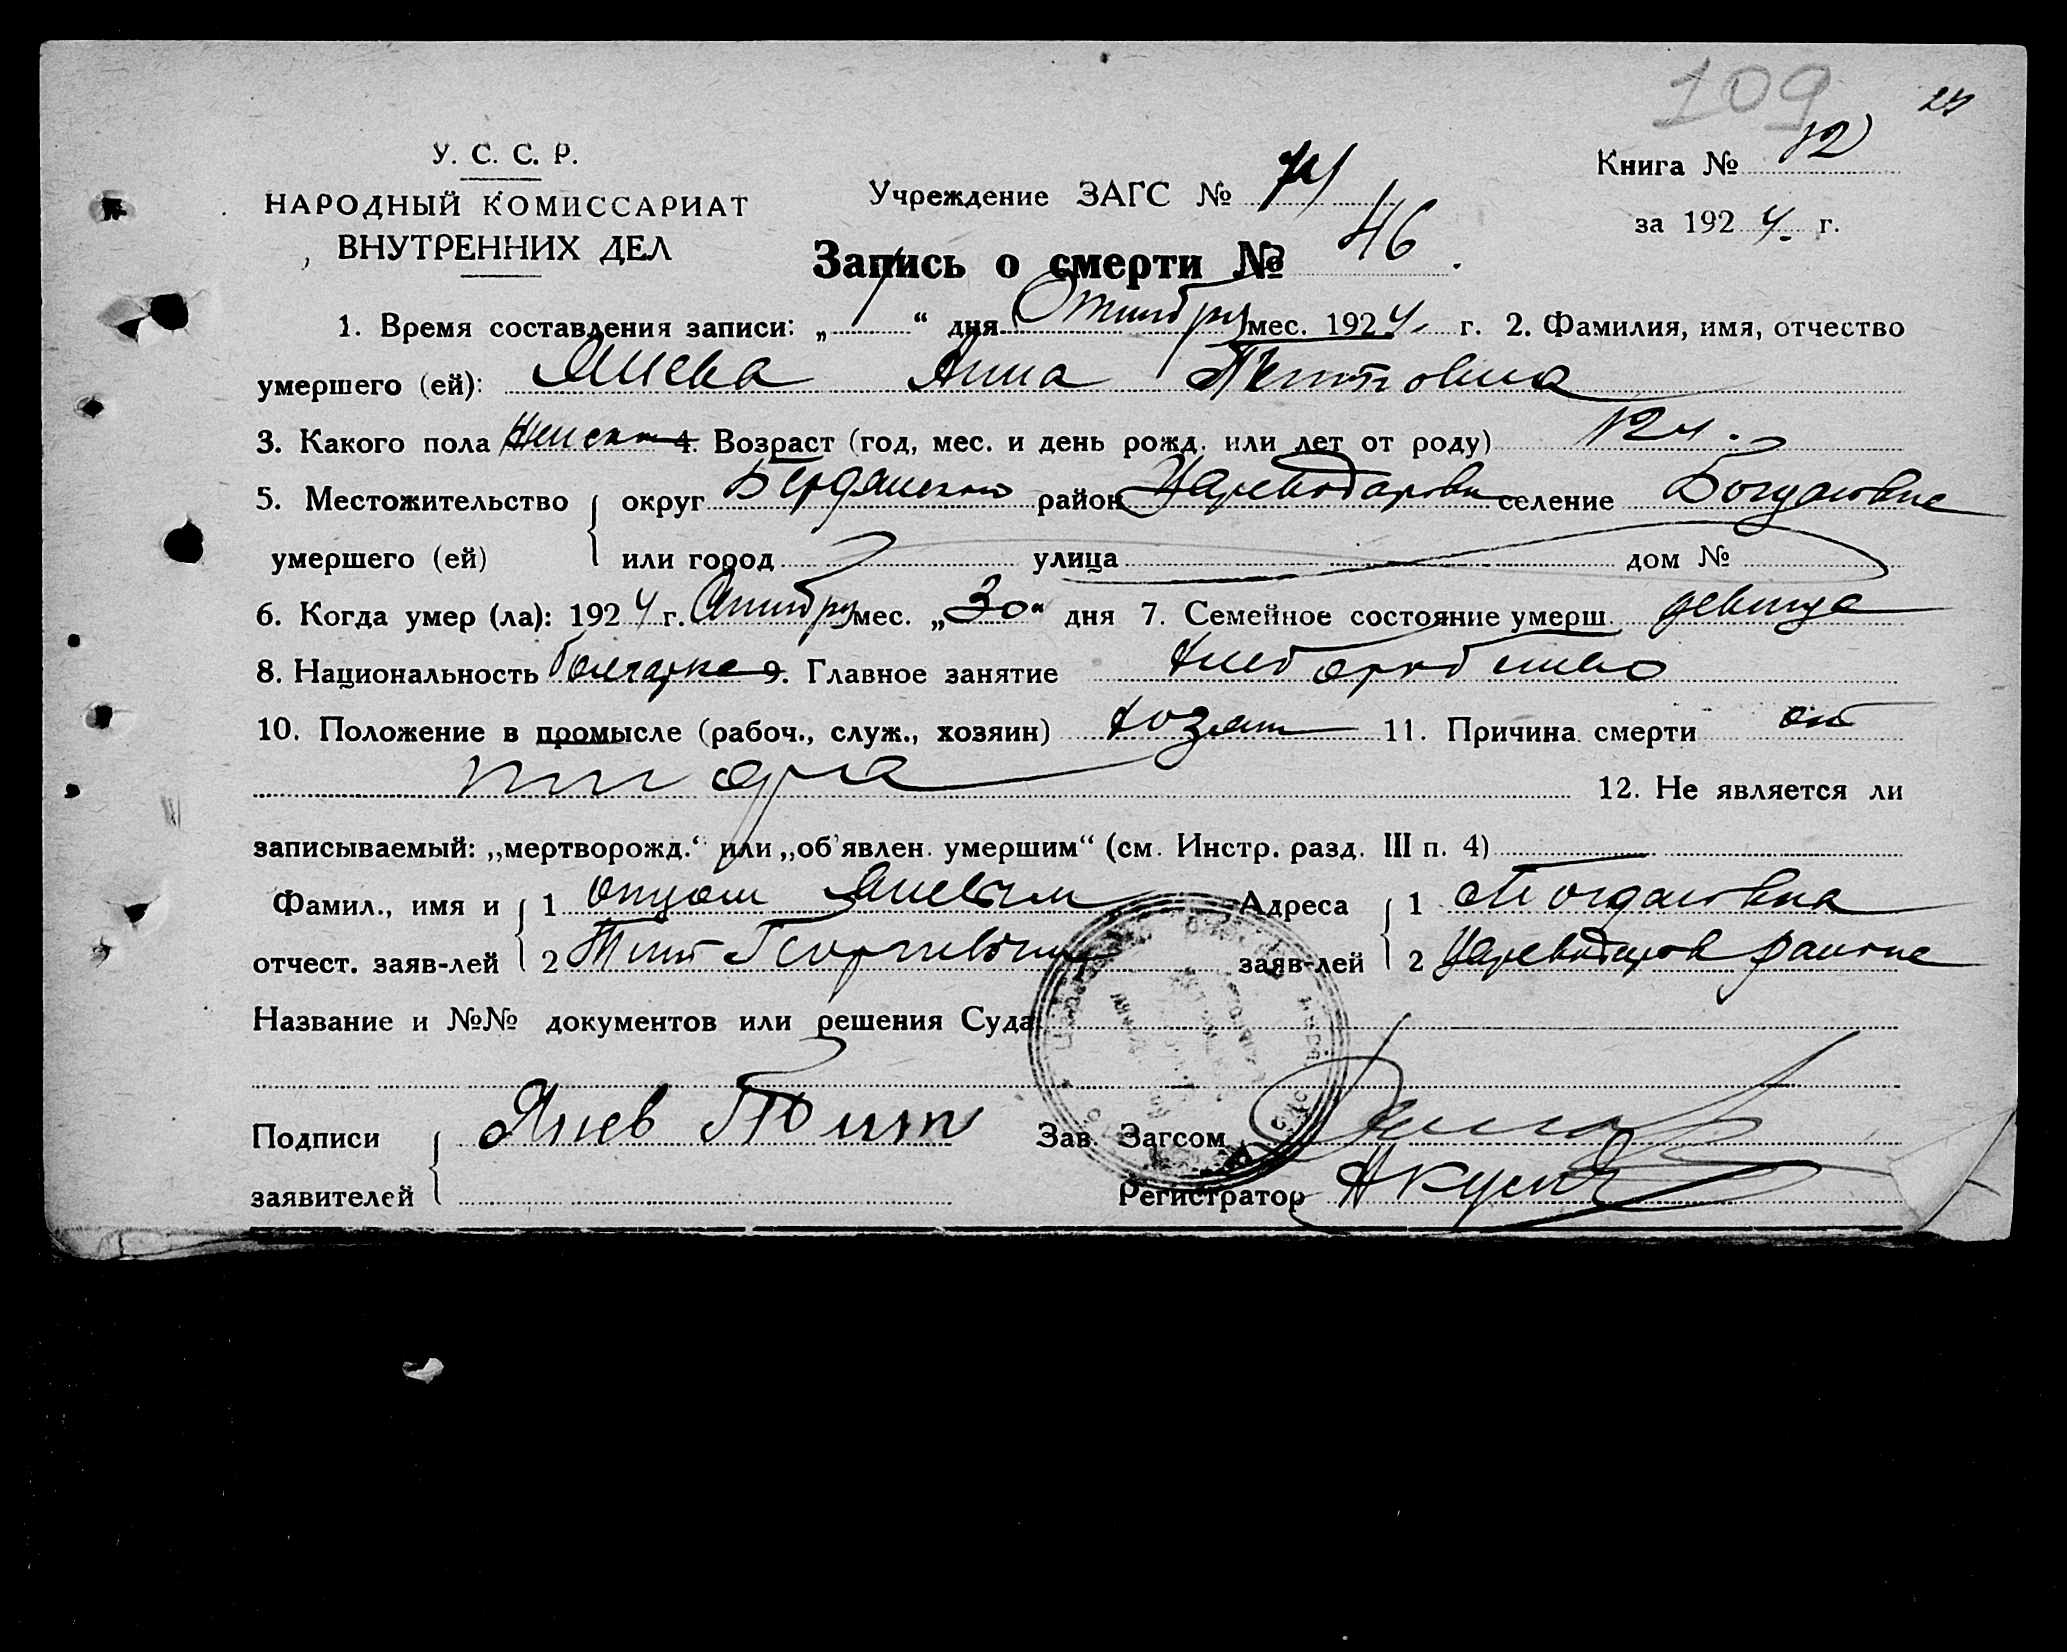 109 24
У. С. С. Р.
НАРОДНЫЙ КОМИССАРИАТ
ВНУТРЕННИХ ДЕЛ
Учреждение ЗАГС №
Книга № 12
за 1924. г.
Запись о смерти № 46.
1. Время составления записи: „1“ дня Октября мес. 1924. г. 2. Фамилия, имя, отчество
умершего (ей): Янева Анна Титовна
3. Какого пола женск 4. Возраст (год, мес. и день рожд. или лет от роду)
5. Местожительство округ Бердянский район Цареводаровск селение Богдановке
умершего (ей) или город улица дом №
6. Когда умер (ла): 1924 г. мес. „30“ дня 7. Семейное состояние умерш. девица
8. Национальность болгарка 9. Главное занятие хлебопашество
10. Положение в промысле (рабоч., служ., хозяин) хозяин 11. Причина смерти от
12. Не является ли
записываемый: „мертворожд.“ или „об'явлен. умершим“ (см. Инстр. разд. III п. 4)
Фамил., имя и 1 отцом Яневым Адреса 1 Богдановка
отчест. заяв-лей 2 Тит Георгиевичем заяв-лей 2 Цареводаров района
Название и №№ документов или решения Суда:
Подписи Янев Тит Зав. Загсом
заявителей Регистратор